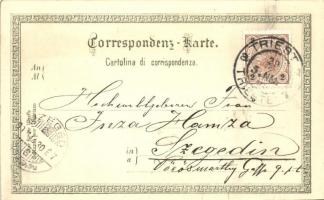 Correspondenz-Karte.
Cartolina di corrispondenza.
TRIEST
An
A
Hochwohlgeboren Frau
Inza Hamza
in
a
Szegedin
Vörösmarthy Gasse 9.